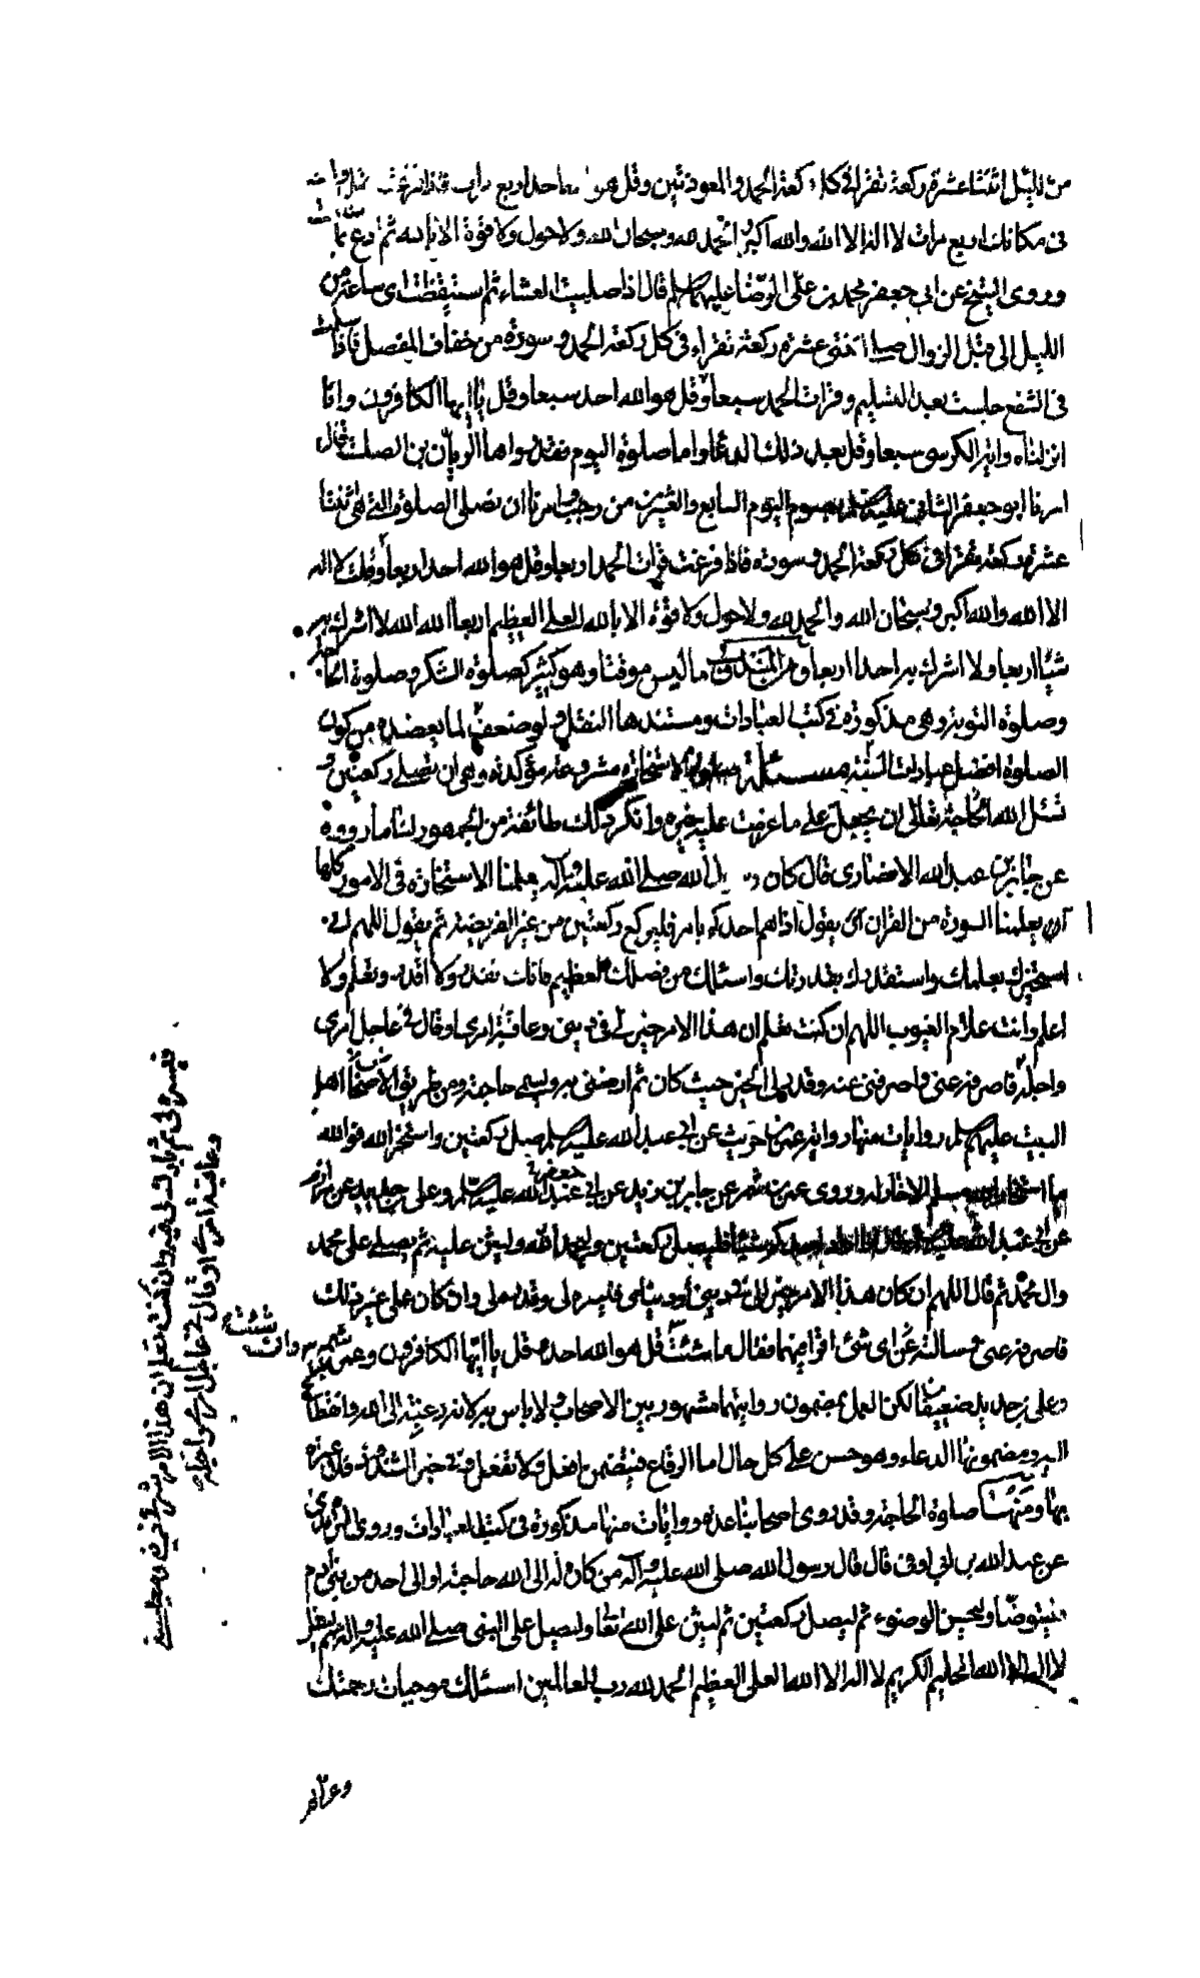 من الليل اثنتا عشرة ركعة تقرأ في كل ركعة الحمد والمعوذتين وقل هو احد اربع مرات فاذا فرغت قلت وانت
في مكانك اربع مرات لا اله الا الله والله اكبر الحمد لله وسبحان الله ولا حول ولا قوة الا بالله ثم ادع بما
وروى الشيخ عن ابي جعفر محمد بن علي الرضا عليهما السلم قال اذا صليت العشاء ثم استيقظت اى ساعة من
الليل الى قبل الزوال صل اثنتى عشرة ركعة تقراء في كل ركعة الحمد و سورة من خفاف المفصل فاذا سلمت
في الشفع جلست بعد التسليم وقرات الحمد سبعا وقل هو الله احد سبعا وقل يا ايها الكافرون وانا
انزلناه واية الكرسى سبعا وقل بعد ذلك الدعا واما صلوة اليوم فقد رواها الريان بن الصلت قال
ابو جعفر الثاني عليه السلم بصوم اليوم السابع والعشرين من رجب امرنا ان نصلى الصلوة التى هى اثنتا
عشرة ركعة تقرا في كل ركعة الحمد و سورة فاذا فرغت قرات الحمد اربعا وقل هو الله احد اربعا وقلت لا اله
الا الله والله اكبر وسبحان الله والحمد لله ولا حول ولا قوة الا بالله العلى العظيم اربعا الله الله لا اشرك به
شيئا اربعا ولا اشرك به احدا اربعا ومن المندوب ما ليس موقتا وهو كثير كصلوة الشكر وصلوة الحاجة
وصلوة التوبة وهى مذكورة في كتب العبادات ومستندها النقل ولو ضعف لما يعضده من كون
الصلوة افضل عبادات السنية مسئلة صلوة الاستخارة مشروعة مؤكدة وهى ان يصلى ركعتين و
تسئل الله الحاجة تعالى ان يجعل على ما عزمت عليه خيره وانكر ذلك طائفة من الجمهور لنا ما رووه
عن جابر بن عبد الله الانصارى قال كان رسول الله صلى الله عليه وآله يعلمنا الاستخارة في الامور كلها
كما يعلمنا السورة من القران يقول اذا هم احدكم بامر فليركع ركعتين من غير الفريضة ثم يقول اللهم انى
استخيرك بعلمك واستقدرك بقدرتك واسئلك من فضلك العظيم فانك تقدر ولا اقدر وتعلم ولا
اعلم وانت علام الغيوب اللهم ان كنت تعلم ان هذا الامر خير لى في دينى وعاقبة امرى او قال في عاجل امرى
واجله فاصرفه عنى واصرفنى عنه وقدر لى الخير حيث كان ثم ارضنى به ويسمى حاجته ومن طريق الاصحاب اهل
البيت عليهم السلم روايات منها رواية عمرو بن حريث عن ابى عبد الله عليه السلم صل ركعتين واستخر الله فو الله
ما استخار الله مسلم الا خار له وروى عمرو بن شمر عن جابر بن يزيد عن ابى جعفر عليه السلم وعلى بن حديد عن مرازم
عن ابى عبد الله شيئا فليصل ركعتين وليحمد الله وليثن عليه ثم يصلى على محمد
وال محمد ثم قال اللهم ان كان هذا الامر خير لى في دينى ودنياى فيسره لى وقدره لى وان كان على غير ذلك
فاصرفه عنى فسالته عن اى شئ اقرا فيهما فقال ما شئت قل هو الله احد وقل يا ايها الكافرون وعمرو بن
شمر وان شئت
وعلى بن حديد ضعيفان لكن العمل بمضمون روايتهما مشهور بين الاصحاب ولا باس به لانه رغبة الى الله وانقطاع
اليه ومضمونها الدعاء وهو حسن على كل حال اما الرقاع فيتضمن افعل ولا تفعل وفى خبر الشذوذ فلا عبرة
بها ومنها صلوة الحاجة وقد روى اصحابنا عدة روايات منها مذكورة في كتب العبادات وروى الترمذى
عن عبد الله بن ابى اوفى قال قال رسول الله صلى الله عليه وآله من كان له الى الله حاجة او الى احد من بنى ادم
فليتوضأ وليحسن الوضوء ثم ليصل ركعتين ثم ليثن على الله تعالى وليصل على النبى صلى الله عليه وآله ثم ليقل
لا اله الا الله الحليم الكريم لا اله الا الله العلى العظيم الحمد لله رب العالمين اسئلك موجبات رحمتك
وعزائم
فيسره لى ثم بارك لى فيه وان كنت تعلم ان هذا الامر شر لى في دينى ومعيشتى
وعاقبة امرى او قال في عاجل امرى واجله